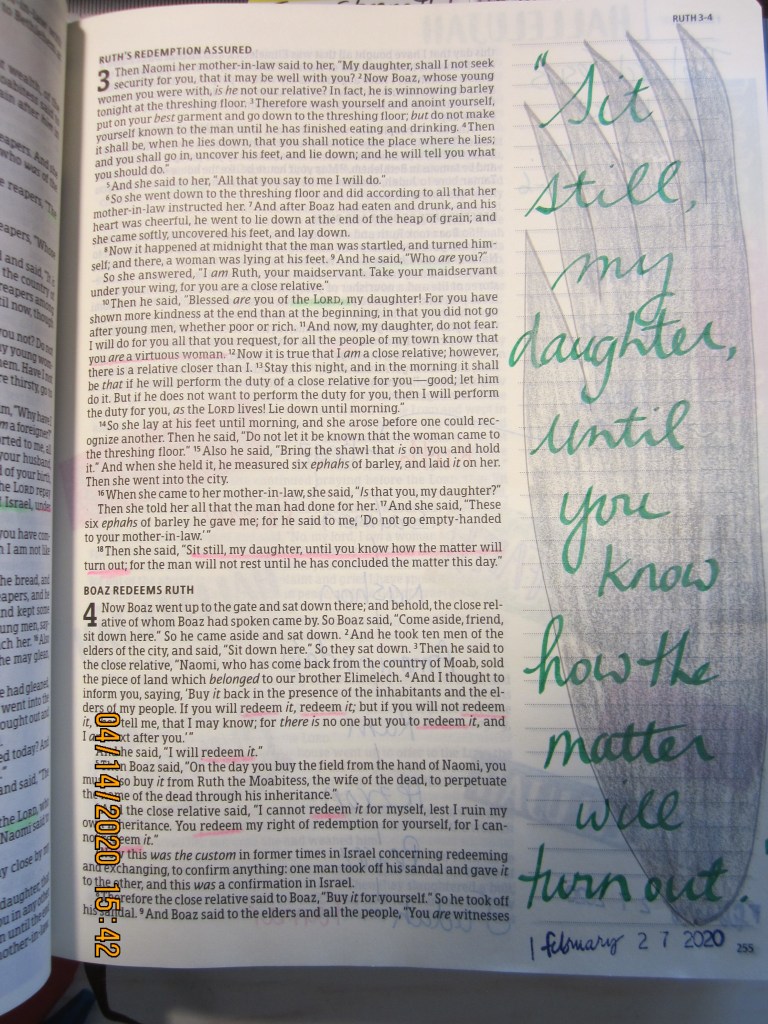 RUTH 3-4
RUTH'S REDEMPTION ASSURED
3 Then Naomi her mother-in-law said to her, "My daughter, shall I not seek
security for you, that it may be well with you? 2 Now Boaz, whose young
women you were with, is he not our relative? In fact, he is winnowing barley
tonight at the threshing floor. 3 Therefore wash yourself and anoint yourself,
put on your best garment and go down to the threshing floor; but do not make
yourself known to the man until he has finished eating and drinking. 4 Then
it shall be, when he lies down, that you shall notice the place where he lies;
and you shall go in, uncover his feet, and lie down; and he will tell you what
you should do."
5 And she said to her, "All that you say to me I will do."
6 So she went down to the threshing floor and did according to all that her
mother-in-law instructed her. 7 And after Boaz had eaten and drunk, and his
heart was cheerful, he went to lie down at the end of the heap of grain; and
she came softly, uncovered his feet, and lay down.
8 Now it happened at midnight that the man was startled, and turned him-
self; and there, a woman was lying at his feet. 9 And he said, "Who are you?"
So she answered, "I am Ruth, your maidservant. Take your maidservant
under your wing, for you are a close relative."
10 Then he said, "Blessed are you of the LORD, my daughter! For you have
shown more kindness at the end than at the beginning, in that you did not go
after young men, whether poor or rich. 11 And now, my daughter, do not fear.
I will do for you all that you request, for all the people of my town know that
you are a virtuous woman. 12 Now it is true that I am a close relative; however,
there is a relative closer than I. 13 Stay this night, and in the morning it shall
be that if he will perform the duty of a close relative for you—good; let him
do it. But if he does not want to perform the duty for you, then I will perform
the duty for you, as the LORD lives! Lie down until morning."
14 So she lay at his feet until morning, and she arose before one could rec-
ognize another. Then he said, "Do not let it be known that the woman came to
the threshing floor." 15 Also he said, "Bring the shawl that is on you and hold
it." And when she held it, he measured six ephahs of barley, and laid it on her.
Then she went into the city.
16 When she came to her mother-in-law, she said, "Is that you, my daughter?"
Then she told her all that the man had done for her. 17 And she said, "These
six ephahs of barley he gave me; for he said to me, 'Do not go empty-handed
to your mother-in-law.'"
18 Then she said, "Sit still, my daughter, until you know how the matter will
turn out; for the man will not rest until he has concluded the matter this day."
BOAZ REDEEMS RUTH
4 Now Boaz went up to the gate and sat down there; and behold, the close rel-
ative of whom Boaz had spoken came by. So Boaz said, "Come aside, friend,
sit down here." So he came aside and sat down. 2 And he took ten men of the
elders of the city, and said, "Sit down here." So they sat down. 3 Then he said to
the close relative, "Naomi, who has come back from the country of Moab, sold
the piece of land which belonged to our brother Elimelech. 4 And I thought to
inform you, saying, 'Buy it back in the presence of the inhabitants and the el-
ders of my people. If you will redeem it, redeem it; but if you will not redeem
it, tell me, that I may know; for there is no one but you to redeem it, and
I after you.'"
he said, "I will redeem it."
Boaz said, "On the day you buy the field from the hand of Naomi, you
buy it from Ruth the Moabitess, the wife of the dead, to perpetuate
of the dead through his inheritance."
the close relative said, "I cannot redeem it for myself, lest I ruin my
You redeem my right of redemption for yourself, for I can-
this was the custom in former times in Israel concerning redeeming
and exchanging, to confirm anything: one man took off his sandal and gave it
to the other, and this was a confirmation in Israel.
Therefore the close relative said to Boaz, "Buy it for yourself." So he took off
his sandal. 9 And Boaz said to the elders and all the people, "You are witnesses
"Sit
still,
my
daughter,
until
you
know
how the
matter
will
turn out."
February 27 2020
255
04/14/2020 15:42